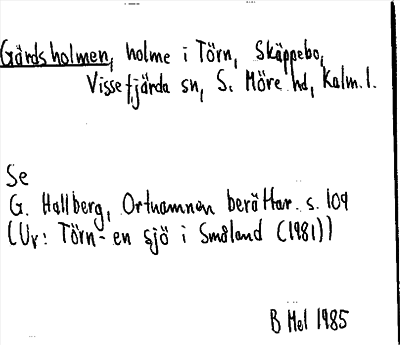 Gårdsholmen, holme i Törn, Skäppebo,
Vissefjärda sn, S. Möre hd, Kalm. l.
Se
G. Hallberg, Ortnamnen berättar. s. 109
(Ur: Törn - en sjö i Småland (1981))
B Mel 1985